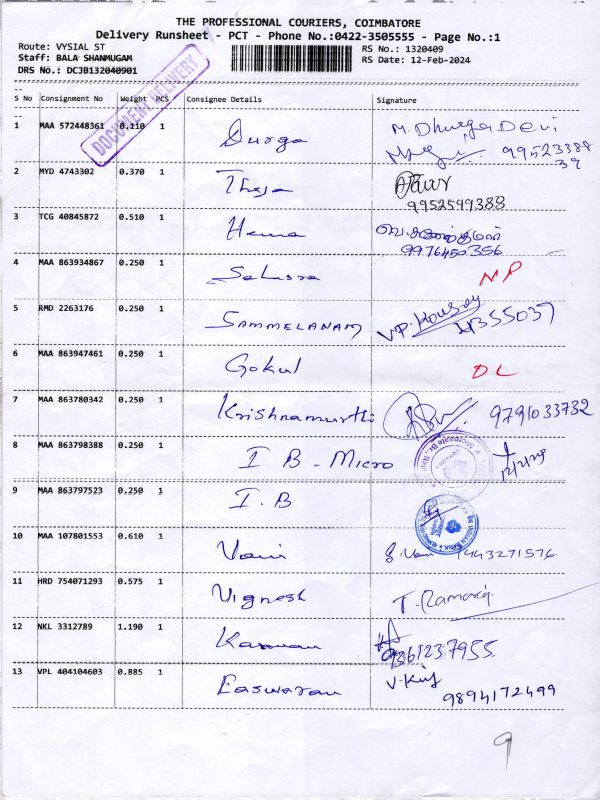 THE PROFESSIONAL COURIERS, COIMBATORE
Delivery Runsheet - PCT - Phone No.:0422-3505555 - Page No.:1
Route: VYSIAL ST
RS No.: 1320409
Staff: BALA SHANMUGAM
RS Date: 12-Feb-2024
DRS No.: DCJB132040901
DOCUMENT DELIVERY
S No Consignment No Weight PCS Consignee Details Signature
1 MAA 572448361 0.110 1 Durga M. Dhurga Devi
99523388
39
2 MYD 4743302 0.370 1 Theja
9952599388
3 TCG 40845872 0.510 1 Hema
9976450356
4 MAA 863934867 0.250 1 NP
5 RMD 2263176 0.250 1 SAMMELANAM 4355037
6 MAA 863947461 0.250 1 Gokul DL
7 MAA 863780342 0.250 1 Krishnamurthi 9791033732
8 MAA 863798388 0.250 1 I B - Micro
9 MAA 863797523 0.250 1 I. B
10 MAA 107801553 0.610 1 Vani 9443271576
11 HRD 754071293 0.575 1 Vignesh
12 NKL 3312789 1.190 1 9361237955
13 VPL 404104603 0.885 1 Easwaran 9894172499
9